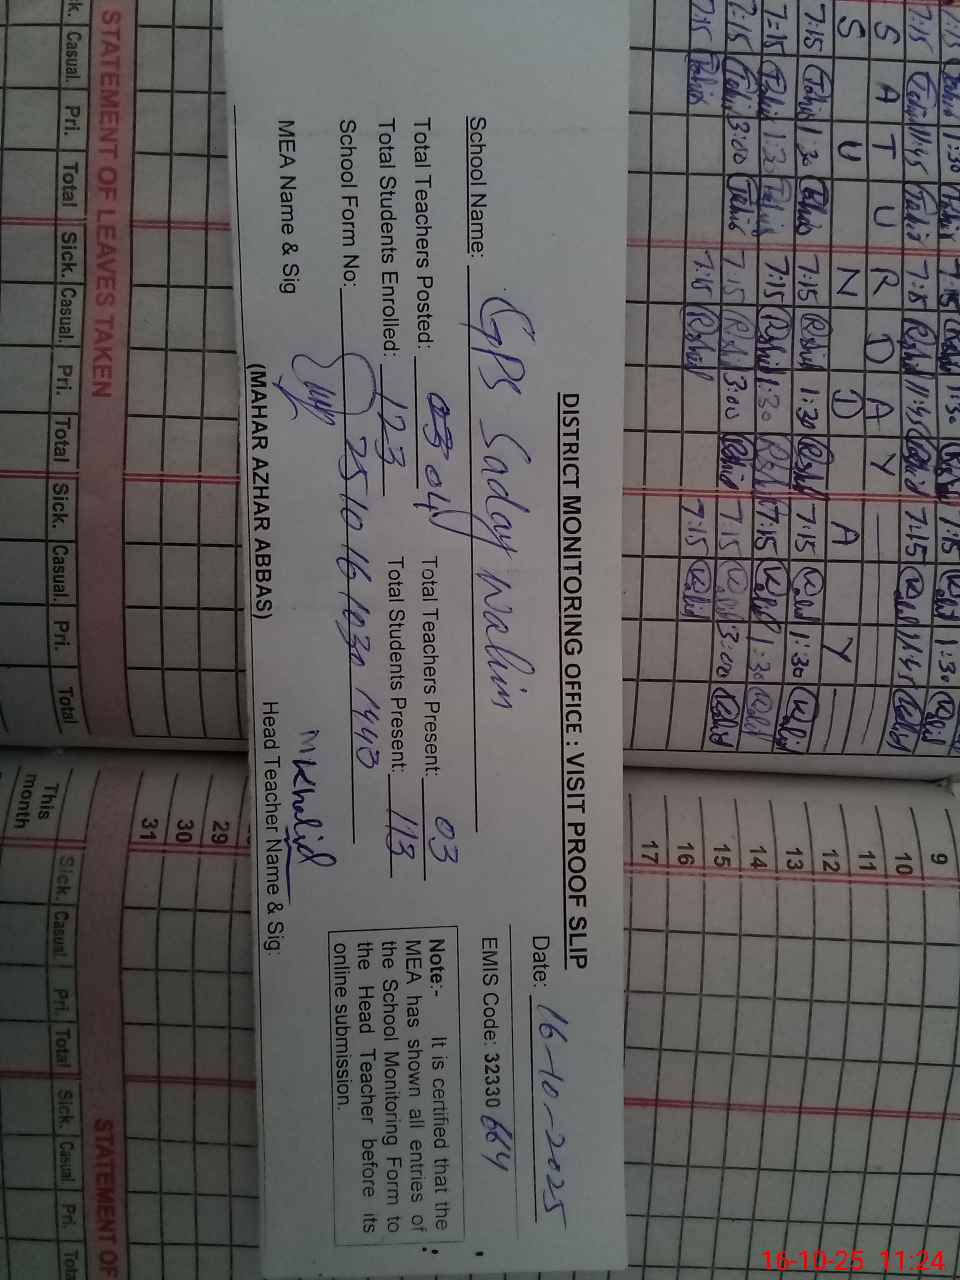 DISTRICT MONITORING OFFICE : VISIT PROOF SLIP
Date: 16-10-2025
School Name: GPS Saday Wahin
EMIS Code: 32330 664
Total Teachers Posted: 04 Total Teachers Present: 03
Total Students Enrolled: 123 Total Students Present: 113
School Form No: 2510 16 1030 1443
MEA Name & Sig
(MAHAR AZHAR ABBAS)
Head Teacher Name & Sig:
M Khalid
Note:- It is certified that the
MEA has shown all entries of
the School Monitoring Form to
the Head Teacher before its
online submission.
S A T U R D A Y
S U N D A Y
7:15 1:30 7:15 1:30 7:15 1:30
7:15 1:30 7:15 1:30 7:15 1:30
7:15 3:00 7:15 3:00 7:15 3:00
7:15 7:15 7:15
9
10
11
12
13
14
15
16
17
29
30
31
This month
STATEMENT OF LEAVES TAKEN
Casual. Pri. Total Sick. Casual. Pri. Total Sick. Casual. Pri. Total
STATEMENT OF
Sick. Casual. Pri. Total Sick. Casual. Pri. Total
16-10-25 11:24